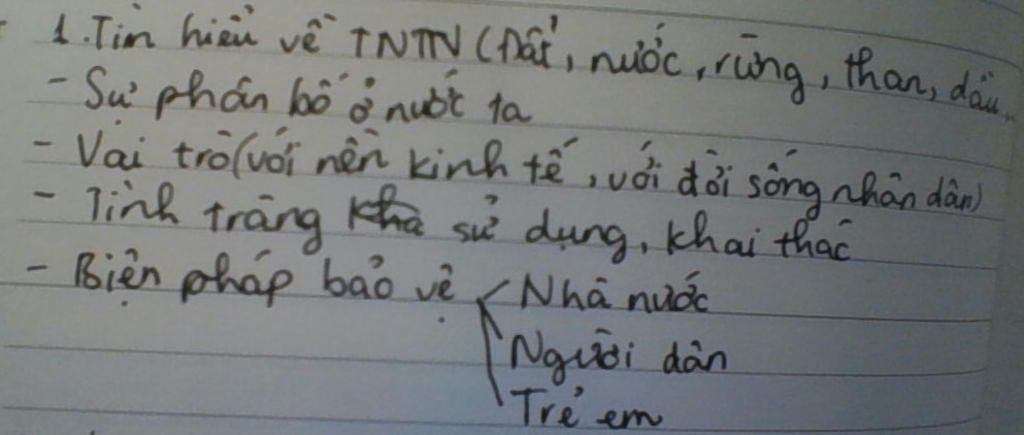 1. Tìm hiểu về TNTN (Đất, nước, rừng, than, dầu...
- Sự phân bố ở nước ta
- Vai trò (với nền kinh tế, với đời sống nhân dân)
- Tình trạng khả sử dụng, khai thác
- Biện pháp bảo vệ < Nhà nước
Người dân
Trẻ em